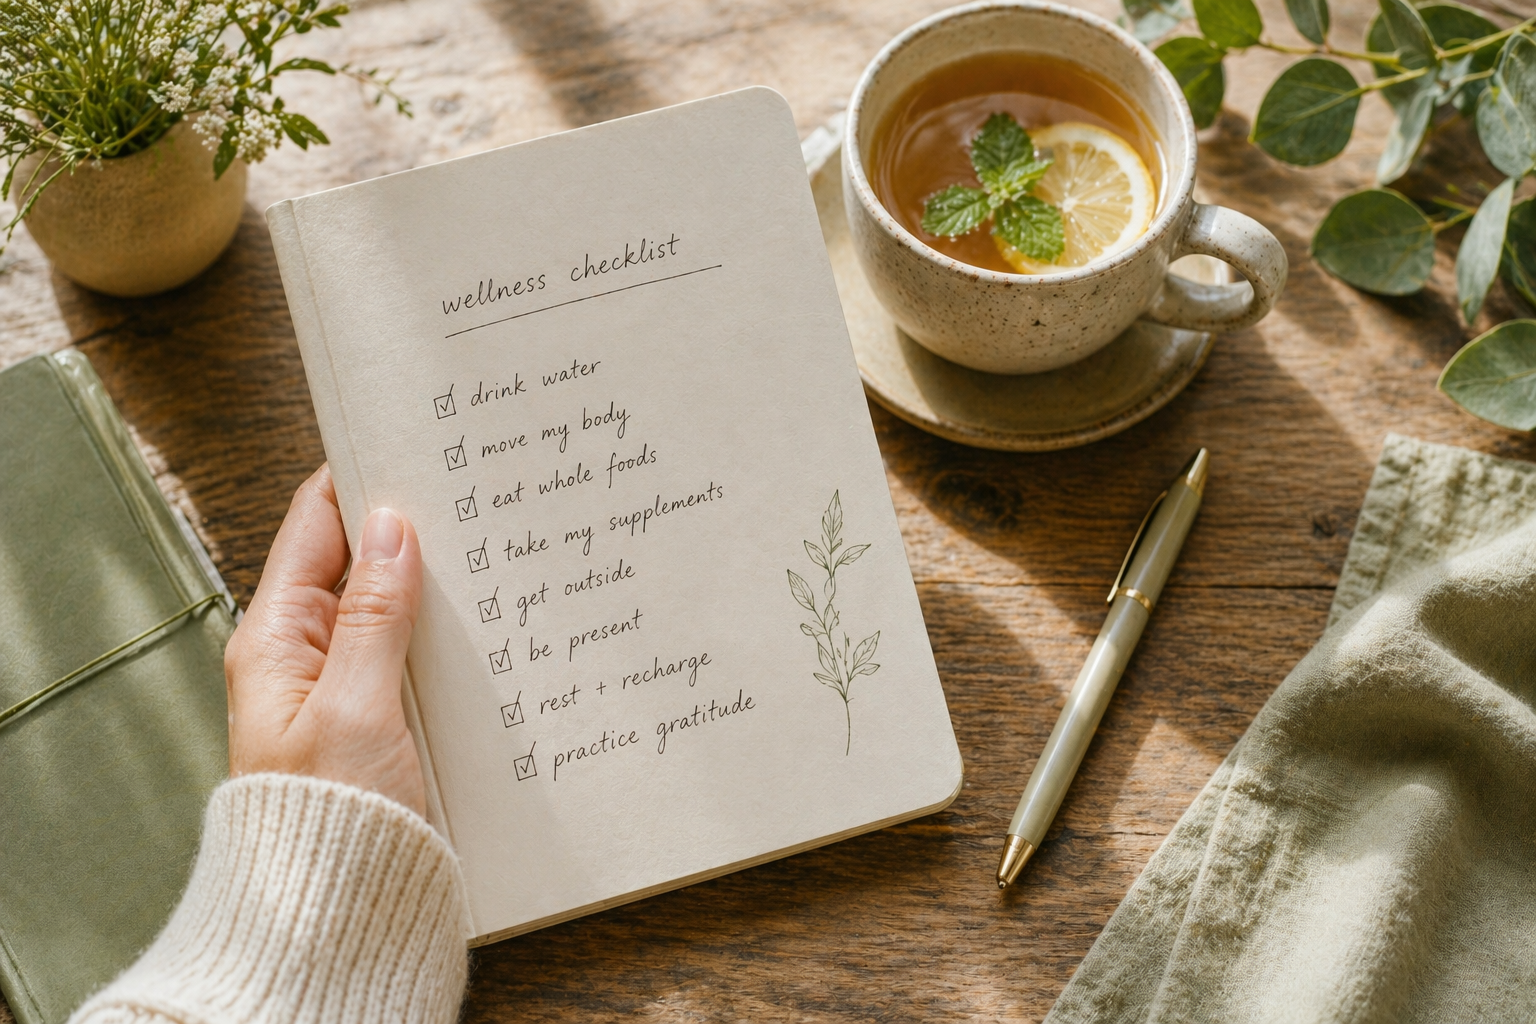 wellness checklist
☑ drink water
☑ move my body
☑ eat whole foods
☑ take my supplements
☑ get outside
☑ be present
☑ rest + recharge
☑ practice gratitude